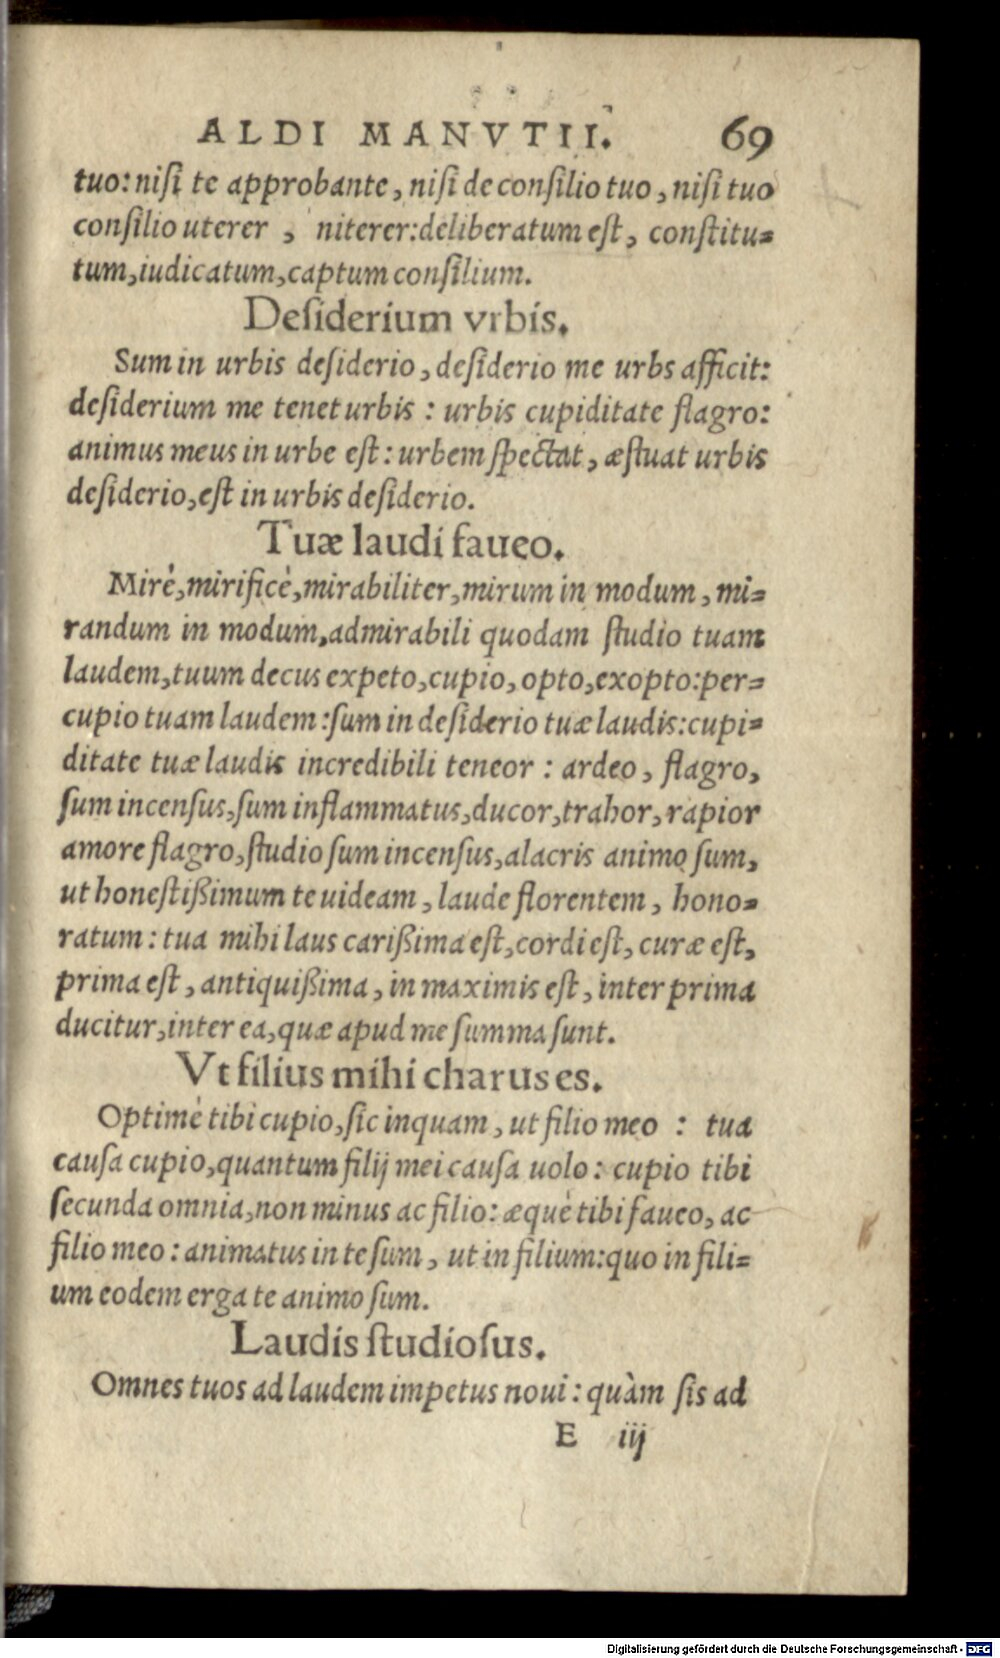 ALDI MANVTII. 69
tuo: niſi te approbante, niſi de conſilio tuo, niſi tuo
conſilio uterer, niterer: deliberatum eſt, conſtitu=
tum, iudicatum, captum conſilium.
Deſiderium vrbis.
Sum in urbis deſiderio, deſiderio me urbs afficit:
deſiderium me tenet urbis: urbis cupiditate flagro:
animus meus in urbe eſt: urbem ſpectat, æſtuat urbis
deſiderio, eſt in urbis deſiderio.
Tuæ laudi faueo.
Mirè, mirificè, mirabiliter, mirum in modum, mi=
randum in modum, admirabili quodam ſtudio tuam
laudem, tuum decus expeto, cupio, opto, exopto: per=
cupio tuam laudem: ſum in deſiderio tuæ laudis: cupi=
ditate tuæ laudis incredibili teneor: ardeo, flagro,
ſum incenſus, ſum inflammatus, ducor, trahor, rapior
amore flagro, ſtudio ſum incenſus, alacris animo ſum,
ut honeſtißimum te uideam, laude florentem, hono=
ratum: tua mihi laus carißima eſt, cordi eſt, curæ eſt,
prima eſt, antiquißima, in maximis eſt, inter prima
ducitur, inter ea, quæ apud me ſumma ſunt.
Vt filius mihi charus es.
Optimè tibi cupio, ſic inquam, ut filio meo: tua
cauſa cupio, quantum filij mei cauſa uolo: cupio tibi
ſecunda omnia, non minus ac filio: æquè tibi faueo, ac
filio meo: animatus in te ſum, ut in filium: quo in fili=
um eodem erga te animo ſum.
Laudis ſtudioſus.
Omnes tuos ad laudem impetus noui: quàm ſis ad
E iij
Digitalisierung gefördert durch die Deutsche Forschungsgemeinschaft - DFG